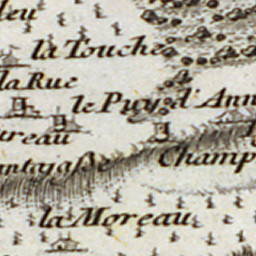 leu
la Touche
la Rue
le Puy d'Ann
ureau
antayasse
Champ
la Moreau